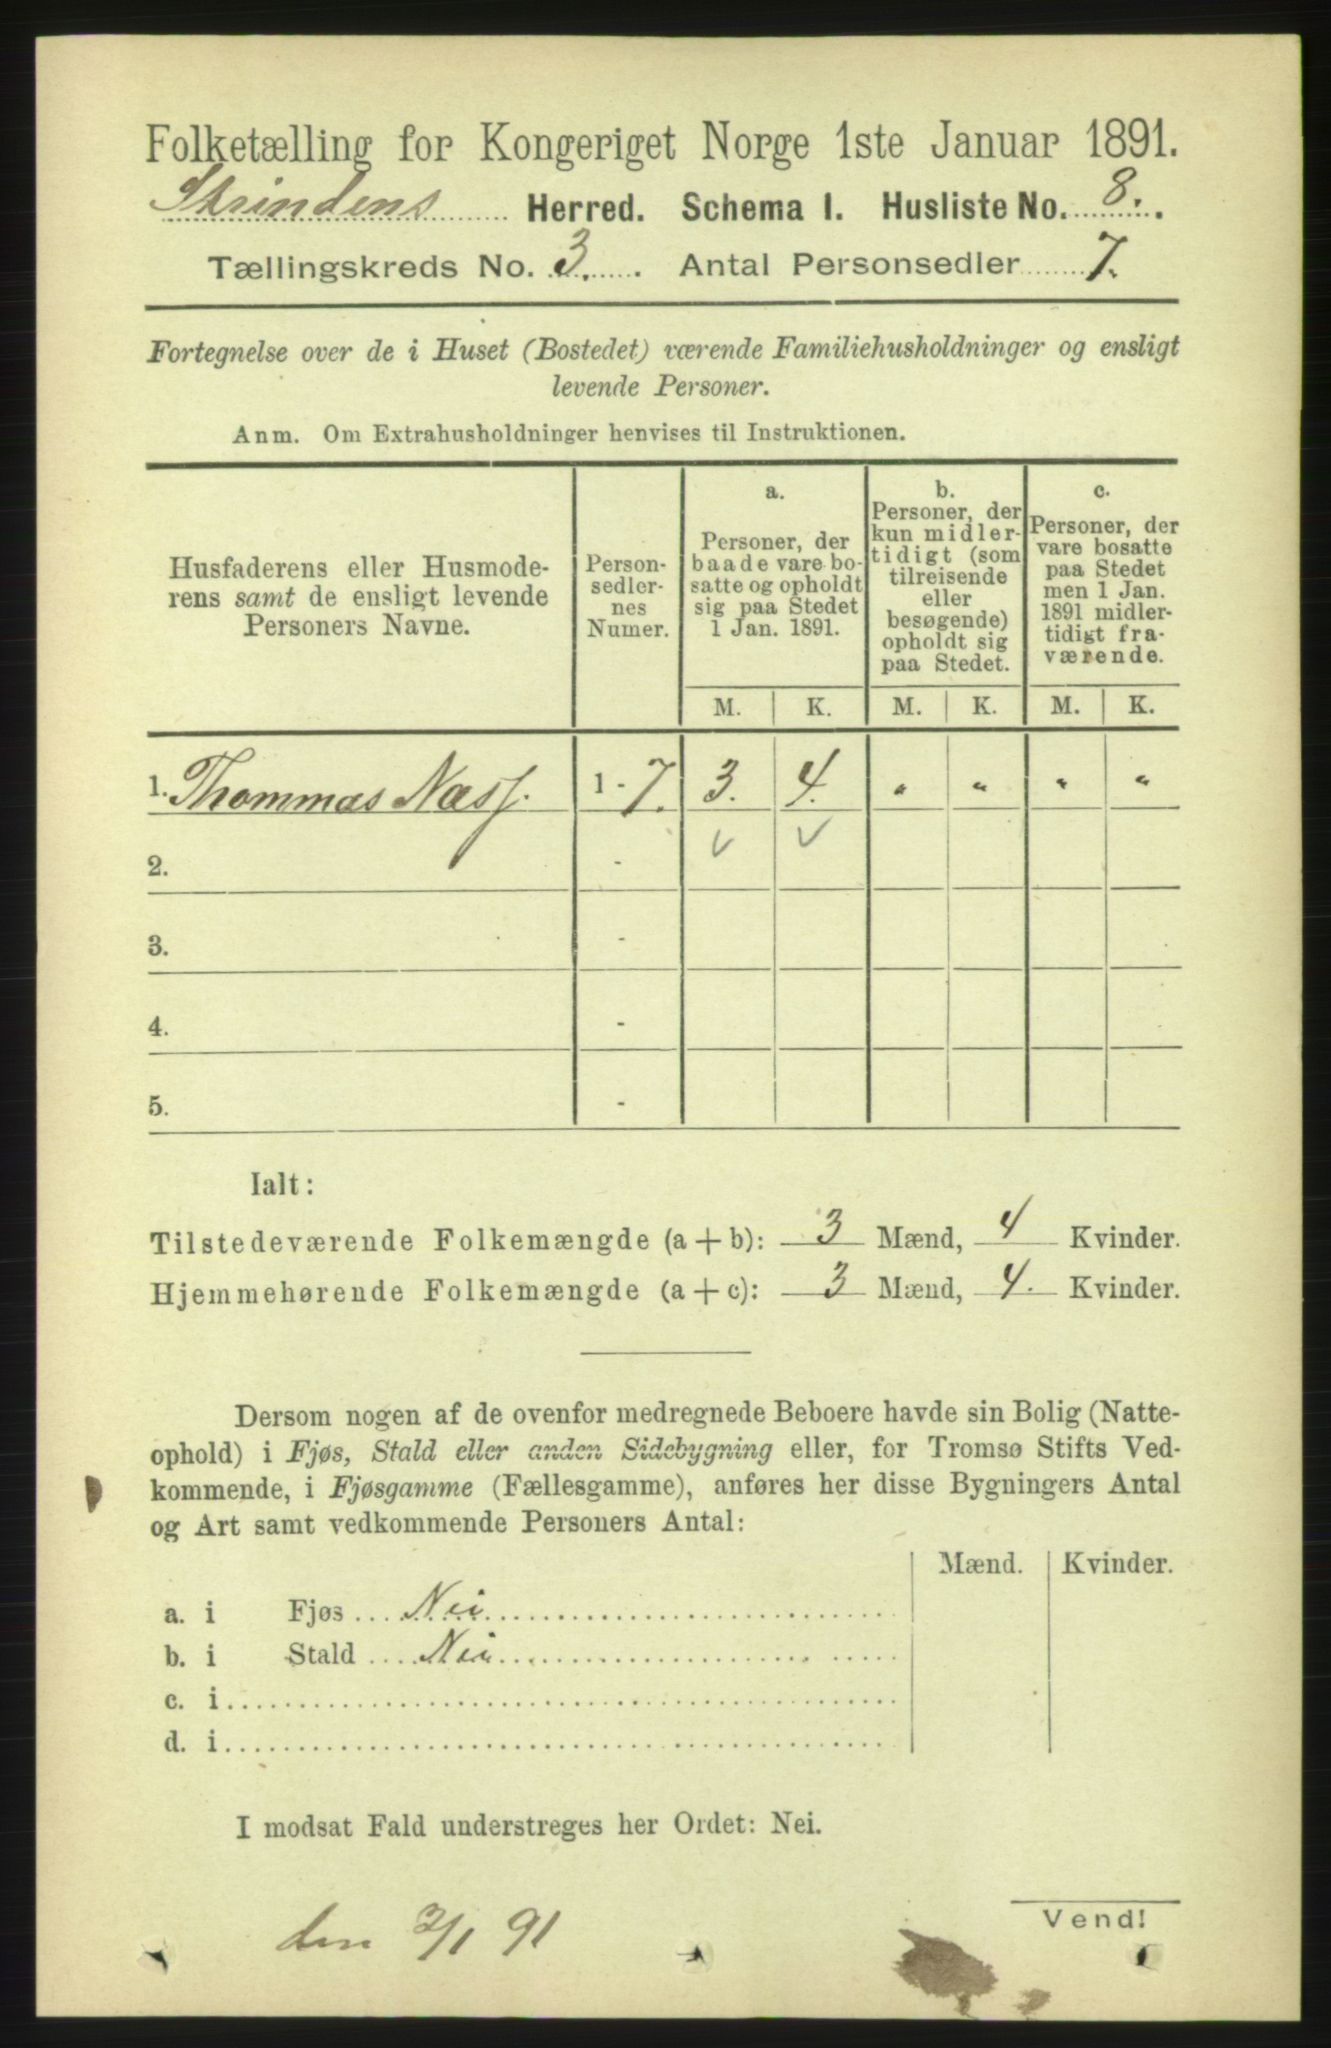 Folketælling for Kongeriget Norge 1ste Januar 1891.
Strindens Herred. Schema I. Husliste No. 8.
Tællingskreds No. 3. Antal Personsedler 7.
Fortegnelse over de i Huset (Bostedet) værende Familiehusholdninger og ensligt
levende Personer.
Anm. Om Extrahusholdninger henvises til Instruktionen.
Husfaderens eller Husmode-
rens samt de ensligt levende
Personers Navne.
Person-
sedler-
nes
Numer.
a.
Personer, der
baade vare bo-
satte og opholdt
sig paa Stedet
1 Jan. 1891.
b.
Personer, der
kun midler-
tidigt (som
tilreisende
eller
besøgende)
opholdt sig
paa Stedet.
c.
Personer, der
vare bosatte
paa Stedet
men 1 Jan.
1891 midler-
tidigt fra-
værende.
M. K. M. K. M. K.
1. Thommas Næss. 1 - 7. 3. 4. " " " "
2. - ✓ ✓
3. -
4. -
5. -
Ialt:
Tilstedeværende Folkemængde (a + b): 3 Mænd, 4 Kvinder.
Hjemmehørende Folkemængde (a + c): 3 Mænd, 4. Kvinder.
Dersom nogen af de ovenfor medregnede Beboere havde sin Bolig (Natte-
ophold) i Fjøs, Stald eller anden Sidebygning eller, for Tromsø Stifts Ved-
kommende, i Fjøsgamme (Fællesgamme), anføres her disse Bygningers Antal
og Art samt vedkommende Personers Antal:
Mænd. Kvinder.
a. i Fjøs Nei
b. i Stald Nei
c. i
d. i
I modsat Fald understreges her Ordet: Nei.
Vend!
den 2/1 91